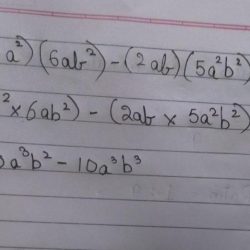 a²)(6ab²)-(2ab)(5a²b²)
²×6ab²) - (2ab × 5a²b²)
a³b² - 10a³b³